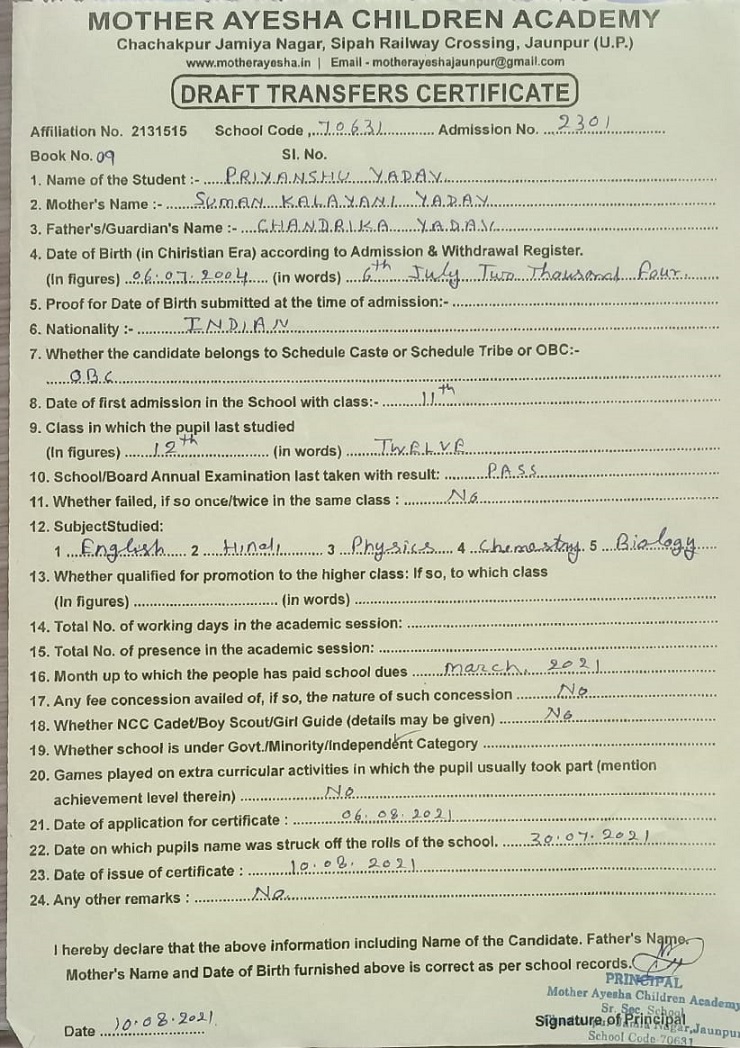 MOTHER AYESHA CHILDREN ACADEMY
Chachakpur Jamiya Nagar, Sipah Railway Crossing, Jaunpur (U.P.)
www.motherayesha.in | Email - motherayeshajaunpur@gmail.com
DRAFT TRANSFERS CERTIFICATE
Affiliation No. 2131515 School Code ,..70631............ Admission No. ...2301.............
Book No. 09 Sl. No.
1. Name of the Student :- .....PRIYANSHU YADAV.....
2. Mother's Name :- ......SUMAN KALAYANI YADAV.....
3. Father's/Guardian's Name :- ...CHANDRIKA YADAV.....
4. Date of Birth (in Chiristian Era) according to Admission & Withdrawal Register.
(In figures) ..06.07.2004..... (in words) ....6th July Two Thousand Four.....
5. Proof for Date of Birth submitted at the time of admission:- .....
6. Nationality :- ..........INDIAN.....
7. Whether the candidate belongs to Schedule Caste or Schedule Tribe or OBC:-
.....OBC.....
8. Date of first admission in the School with class:- .........11th.....
9. Class in which the pupil last studied
(In figures) ......12th............ (in words) ......TWELVE.....
10. School/Board Annual Examination last taken with result: .........PASS.....
11. Whether failed, if so once/twice in the same class : ..........No.....
12. SubjectStudied:
1 ...English.... 2 ....Hindi......... 3 ...Physics.... 4 ..Chemastry. 5 ..Biology....
13. Whether qualified for promotion to the higher class: If so, to which class
(In figures) ................................ (in words) .....
14. Total No. of working days in the academic session: .....
15. Total No. of presence in the academic session: .....
16. Month up to which the people has paid school dues .......march, 2021.....
17. Any fee concession availed of, if so, the nature of such concession .........No.....
18. Whether NCC Cadet/Boy Scout/Girl Guide (details may be given) ..........No.....
19. Whether school is under Govt./Minority/Independent Category .....
20. Games played on extra curricular activities in which the pupil usually took part (mention
achievement level therein) ...................No.....
21. Date of application for certificate : ...........06.08.2021.....
22. Date on which pupils name was struck off the rolls of the school. ......30.07.2021.....
23. Date of issue of certificate : .........10.08.2021.....
24. Any other remarks : .............No.....
I hereby declare that the above information including Name of the Candidate. Father's Name,
Mother's Name and Date of Birth furnished above is correct as per school records.
PRINCIPAL
Mother Ayesha Children Academy
Sr. Sec. School
Signature of Principal
Nagar, Jaunpur
School Code 70631
Date ....10.08.2021.....